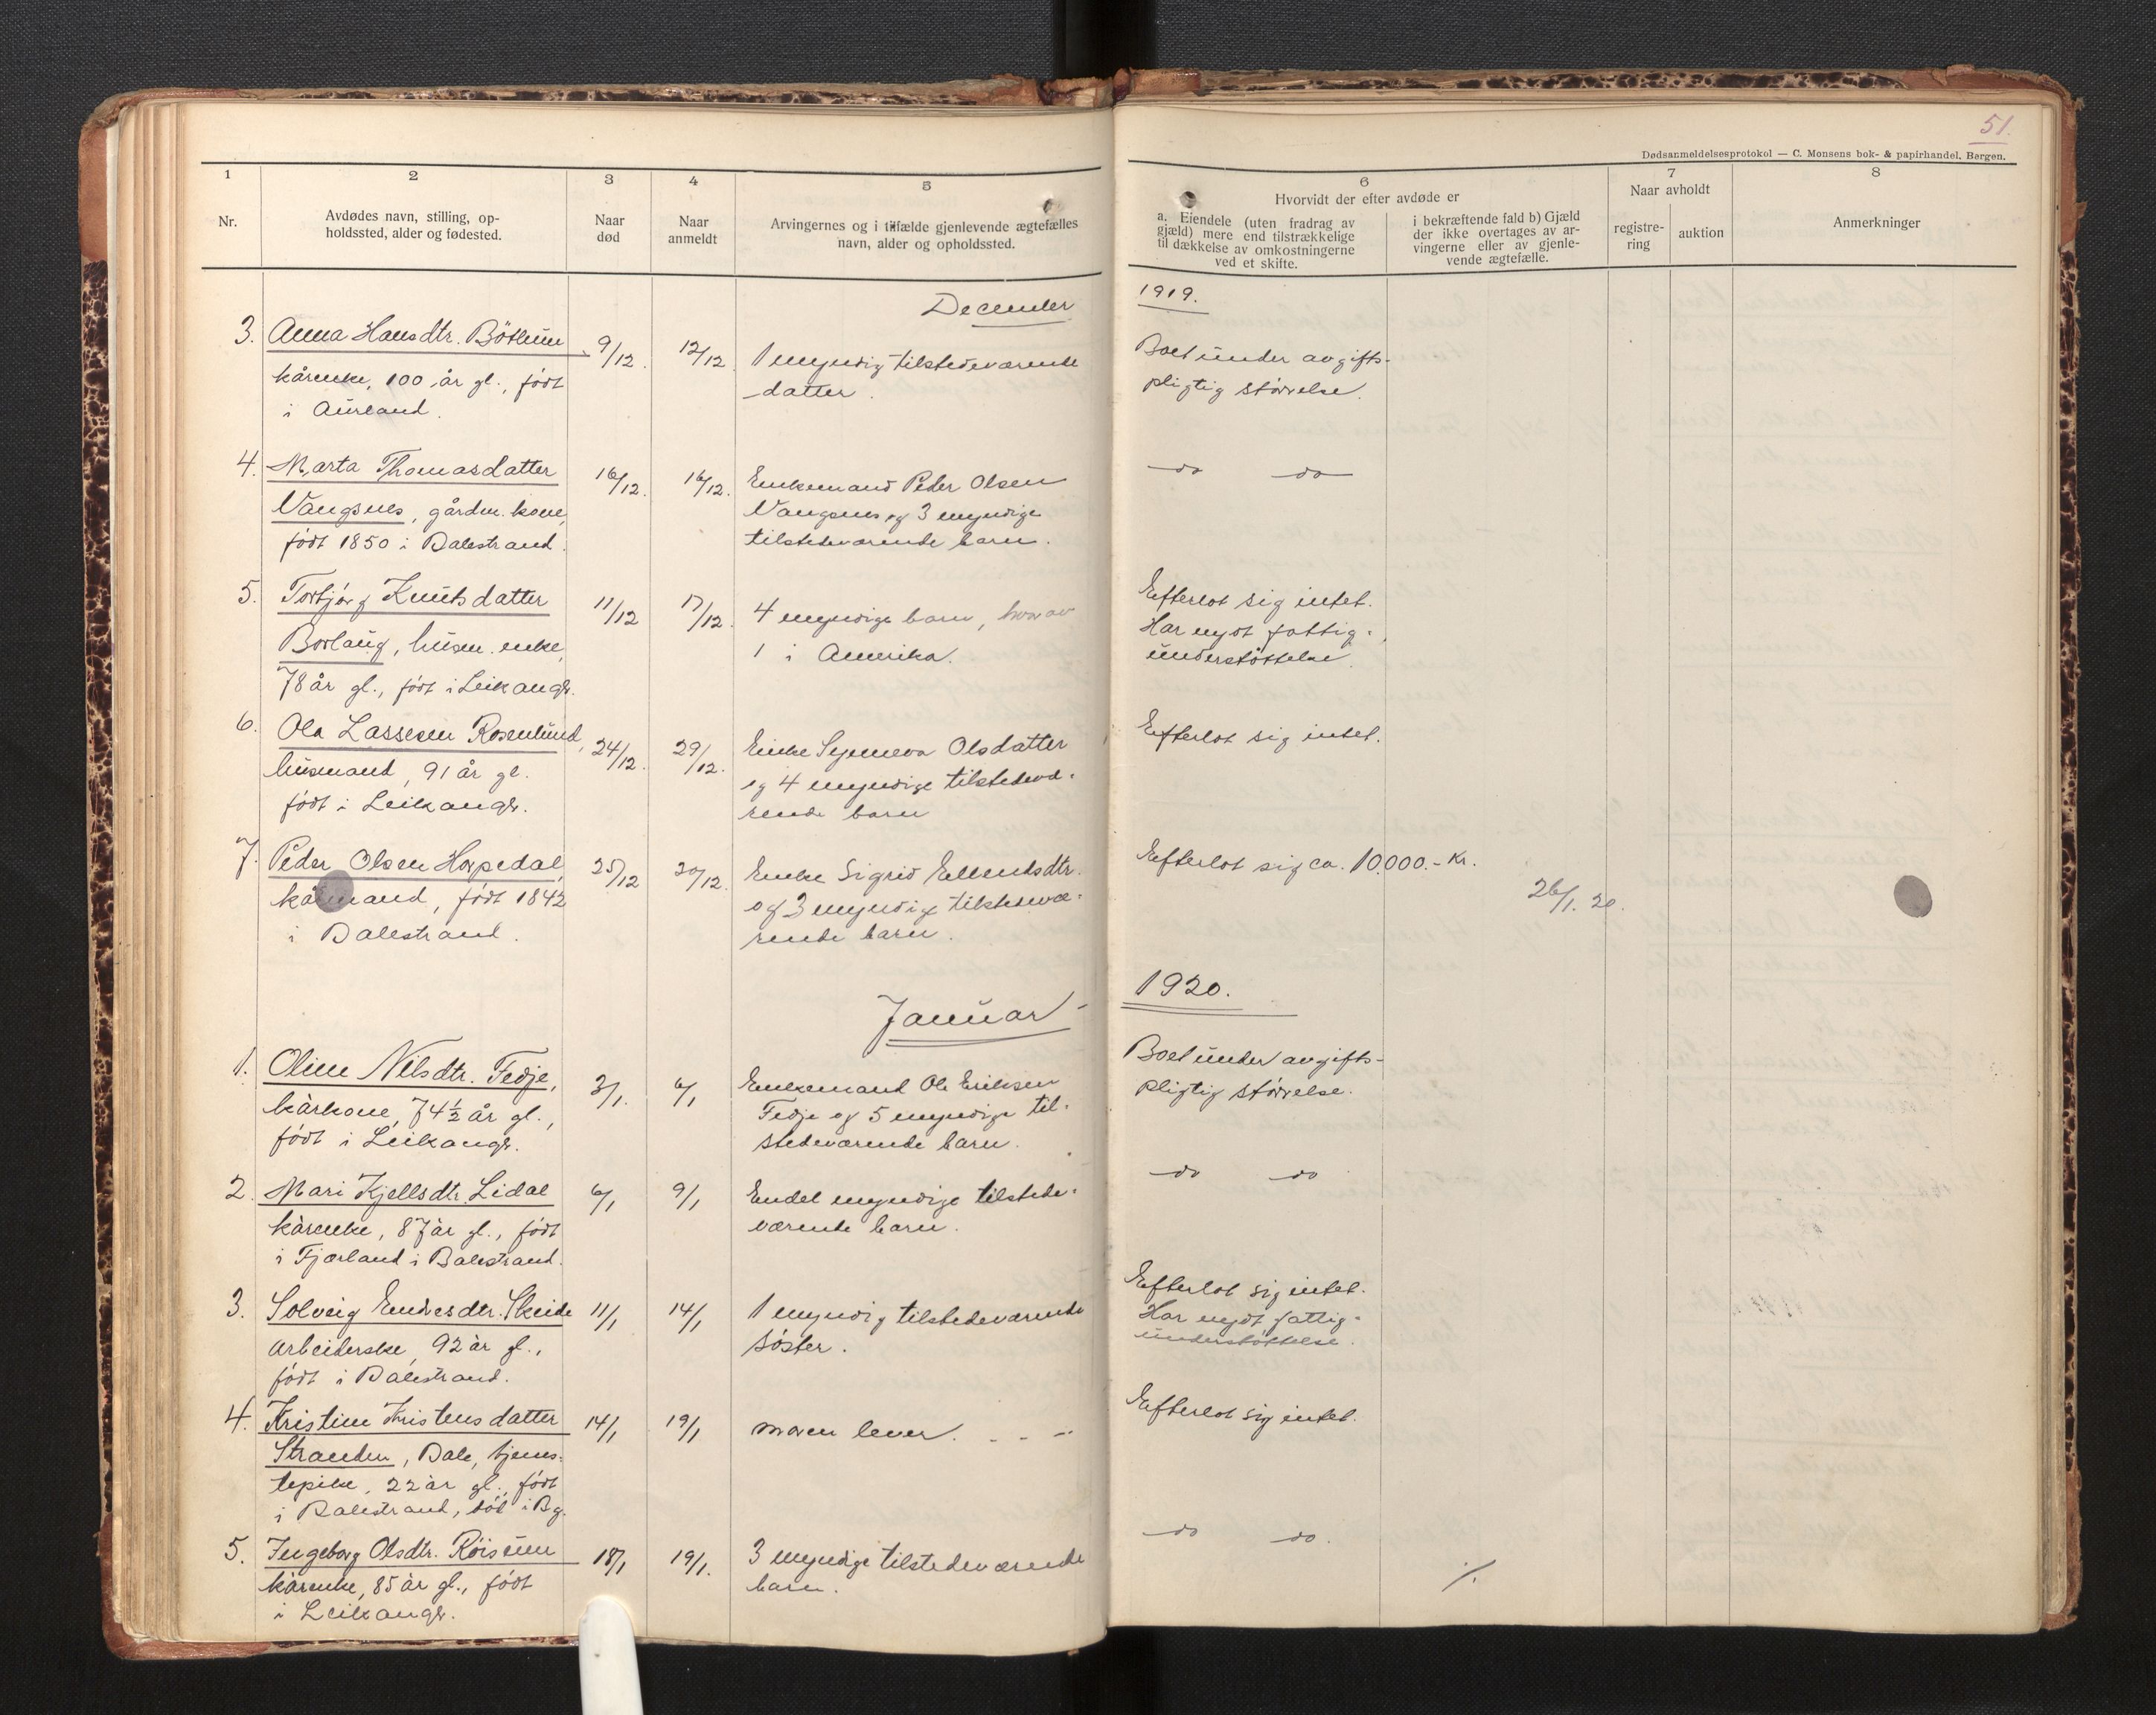 51.
Dødsanmeldelsesprotokol — C. Monsens bok- & papirhandel, Bergen.
1
Nr.
2
Avdødes navn, stilling, op-
holdssted, alder og fødested.
3
Naar
død
4
Naar
anmeldt
5
Arvingernes og i tilfælde gjenlevende ægtefælles
navn, alder og opholdssted.
6
Hvorvidt der efter avdøde er
a. Eiendele (uten fradrag av
gjæld) mere end tilstrækkelige
til dækkelse av omkostningerne
ved et skifte.
i bekræftende fald b) Gjæld
der ikke overtages av ar-
vingerne eller av gjenle-
vende ægtefælle.
7
Naar avholdt
registre-
ring
auktion
8
Anmerkninger
December 1919.
3. Anna Hansdtr. Böthun 9/12. 12/12. 1 myndig tilstedeværende Boet under avgifts-
kårenke, 100 år gl., födt datter. pligtig störrelse.
i Aurland.
4. Marta Thomasdatter 16/12. 16/12. Enkemand Peder Olsen do do
Vangsnes, gårdm. kone, Vangsnes og 3 myndige
födt 1850 i Balestrand. tilstedeværende barn.
5. Torbjörg Knutsdatter 11/12 17/12. 4 myndige barn, hvorav Efterlot sig intet.
Borlaug, husm. enke, 1 i Amerika. Har nydt fattig-
78 år gl., födt i Leikangr. understöttelse.
6. Ola Lassesen Rosenlund, 24/12. 29/12. Enke Synneva Olsdatter Efterlot sig intet.
husmand, 91 år gl. og 4 myndige tilstedevæ-
födt i Leikangr. rende barn
7. Peder Olsen Hopedal, 25/12 30/12. Enke Sigrid Ellendsdtr. Efterlot sig ca. 10.000.- Kr.
kårmand, födt 1842 og 3 myndig tilstedevæ- 26/1. 20.
i Balestrand. rende barn.
Januar 1920.
1. Oline Nilsdtr. Fedje, 3/1. 6/1 Enkemand Ole Eriksen Boet under avgifts-
kårkone, 74½ år gl., Fedje og 5 myndige til- pligtig störrelse.
födt i Leikangr. stedeværende barn.
2. Mari Kjellsdtr. Lidal 6/1 9/1 Endel myndige tilstede- do do
kårenke, 87 år gl., födt værende barn.
i Fjærland i Balestrand.
3. Solveig Endresdtr. Skeide 11/1 14/1 1 myndig tilstedeværende Efterlot sig intet.
arbeiderske, 92 år gl., söster. Har nydt fattig-
födt i Balestrand. understöttelse.
4. Kristine Kristensdatter 14/1 19/1 moren lever. - - - Efterlot sig intet.
Stranden, Bale, tjenes-
tepike, 22 år gl., födt
i Balestrand, död i Bg.
5. Ingeborg Olsdtr. Röisum 18/1 19/1. 3 myndige tilstedeværende do do.
kårenke, 85 år gl., födt barn. ./.
i Leikangr.